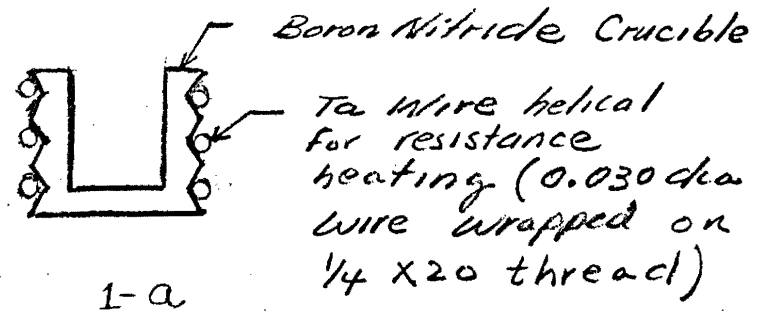 Boron Nitride Crucible
Ta Wire helical
for resistance
heating (0.030 dia
wire wrapped on
1/4 X20 thread)
1-a